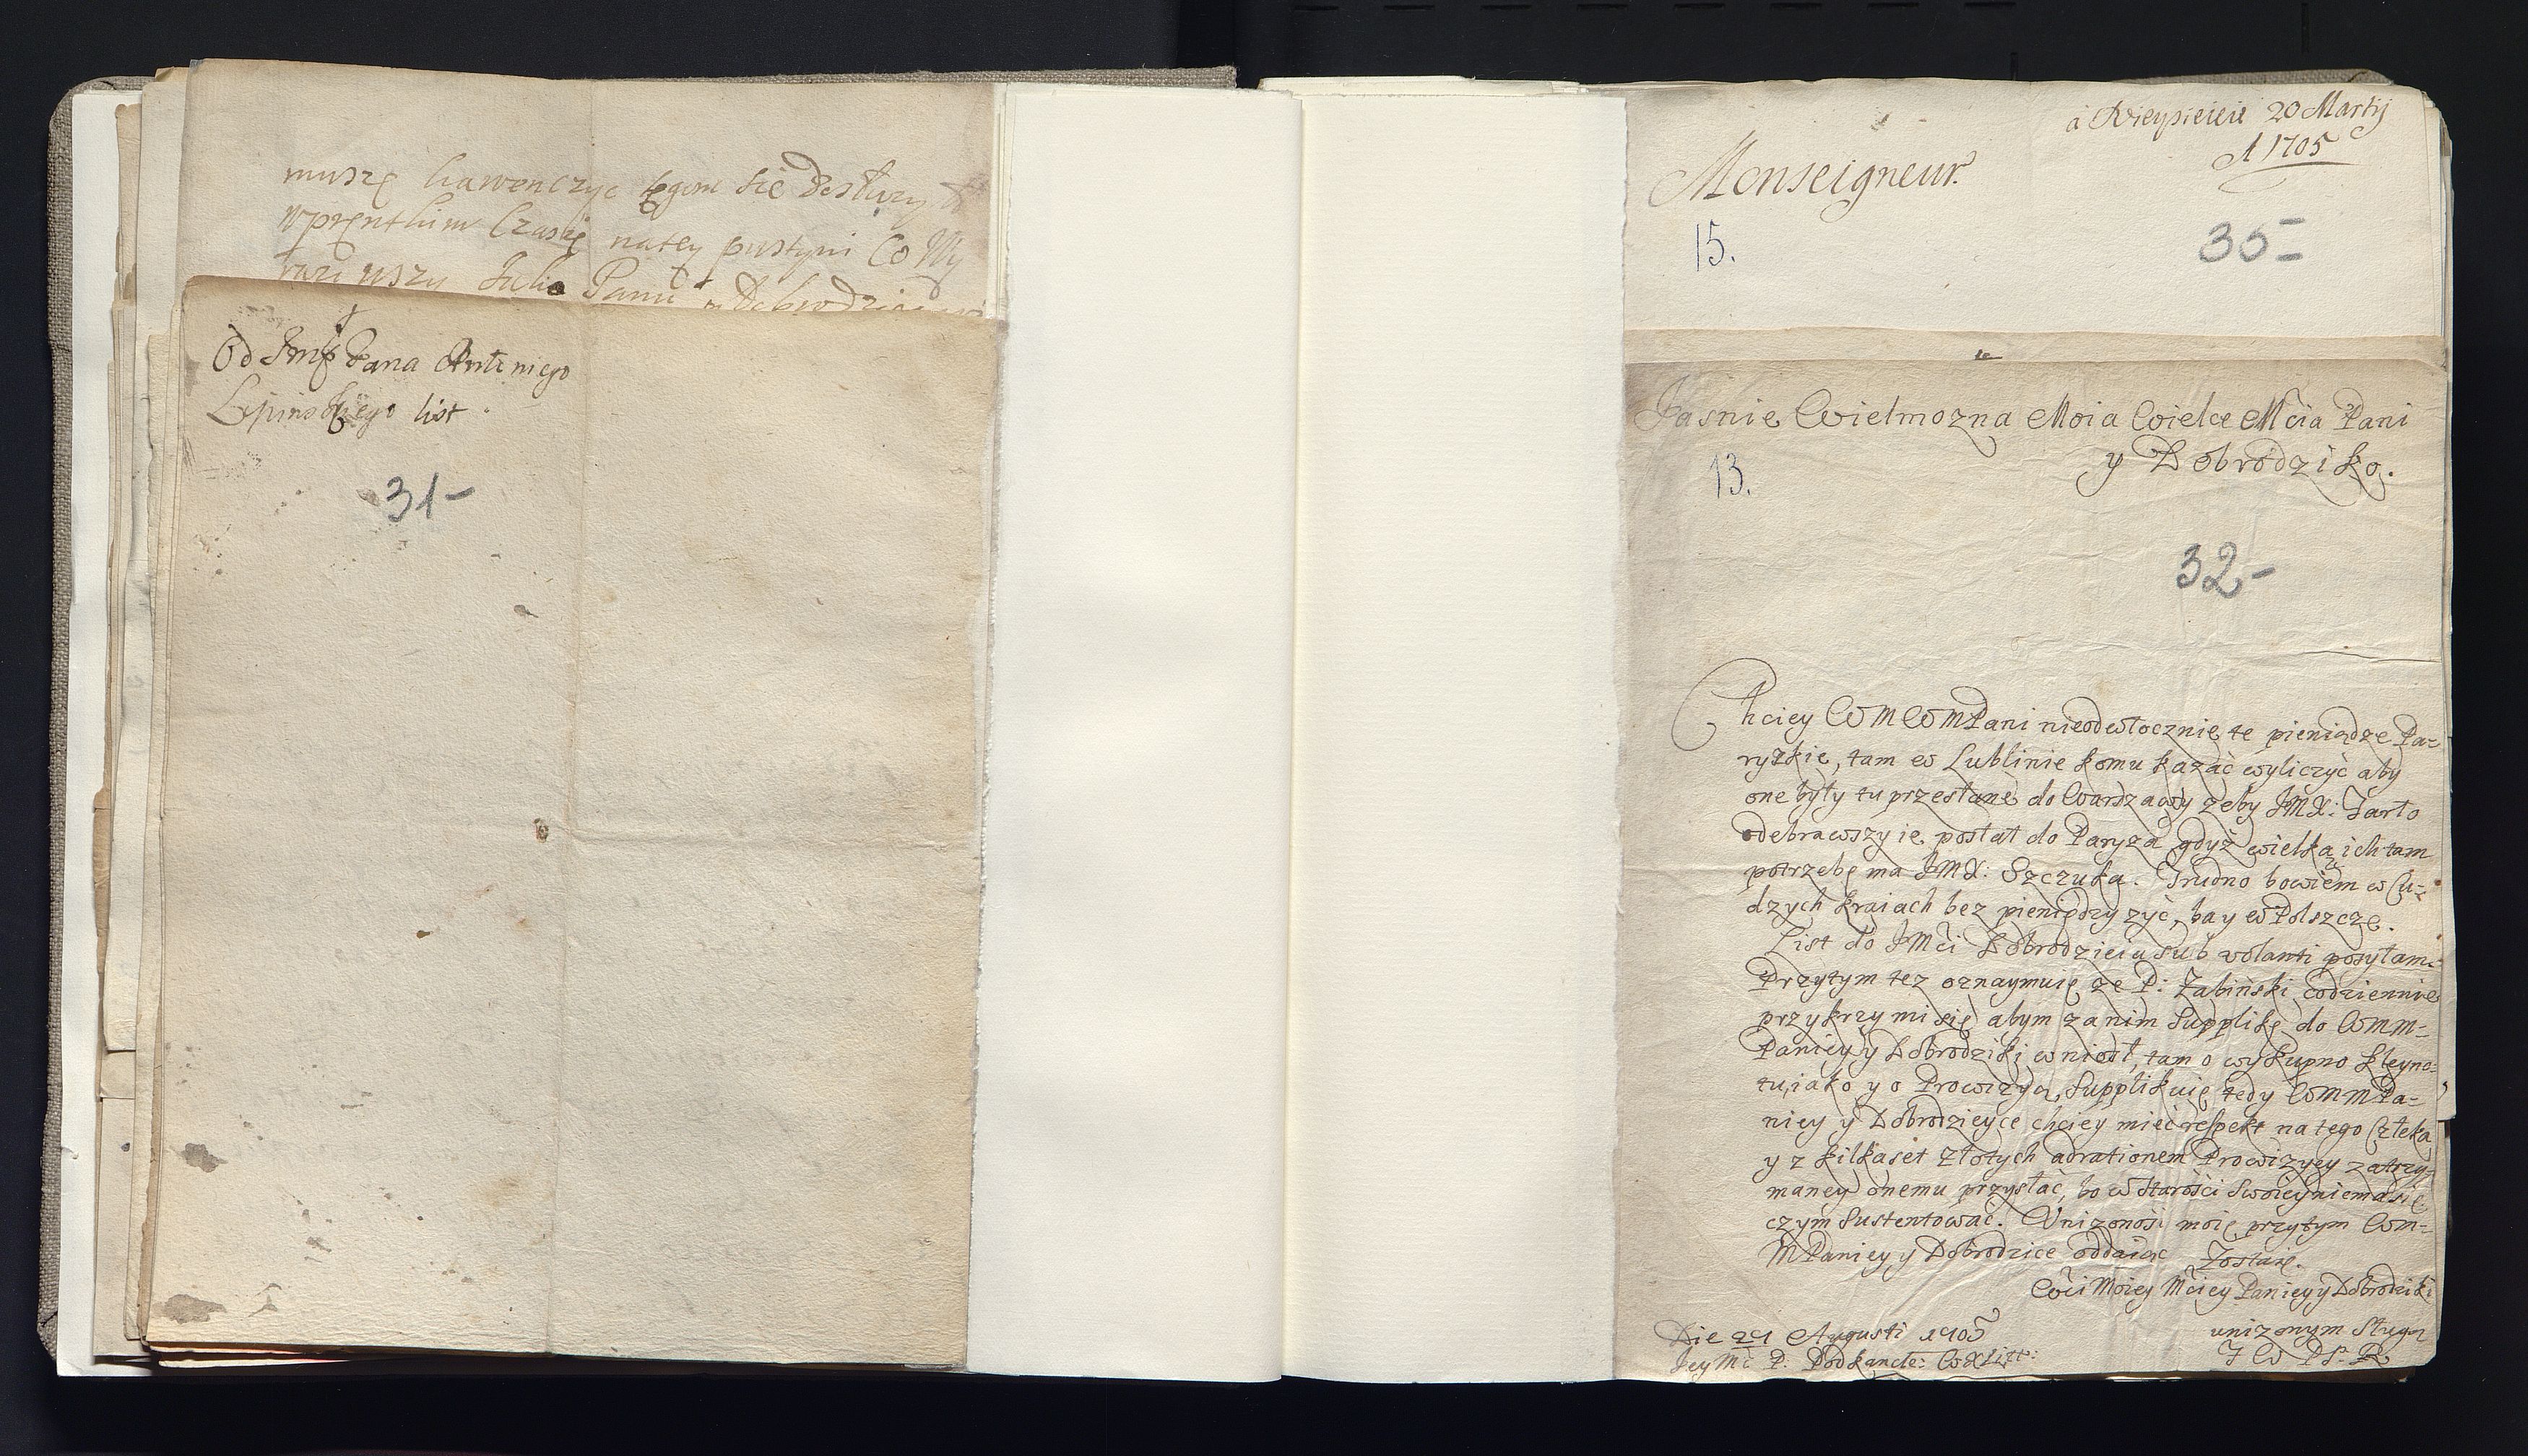 muszę
wprentkim Czasię natey pustyni Co Wy
Panu
Od Jmſ Pana
list.
31-
à 20 Martij
A 1705
Monseigneur.
15.
35-
Jasnie Wielmozna Moia Wielce Mcia Pani
y Dobrodziko.
13.
32-
Chciey WMWMPani nieodwłocznie te pieniądze Pa=
ryzkie, tam w Lublinie komu kazać wyliczyć aby
one były tu przesłane do Warszawy zeby JMX: Tarło
odebrawszy ie posłał do Paryza gdyż wielką ich tam
potrzebę ma JMX: Szczuka. Trudno bowiem w Cu=
dzych kraiach bez pieniędzy zyć, ba y w Polszcze.
List do JMci Dobrodzieia sub volanti posyłam.
Przytym tez oznaymuię ze P: Zabiński codziennie
przykrzy mi się abym za nim Supplikę do WMM=
Paniey y Dobrodziki wniosł, tam o wykupno kleyno=
tu, iako y o Prowizyą, Supplikuię tedy WMMPa=
niey y Dobrodzieyce chciey mieć respekt na tego Człeka
y z kilkaset złotych adrationem Prowizyey zatrzy=
maney onemu przysłać, bo w starości swoiey niema się
czym Sustentować. Unizoność moię przytym WM=
MPaniey y Dobrodzice oddaiąc Zostaię.
WMci Moiey Mciey Paniey y Dobrodziki
unizonym Sługą
Die Augusti 1705
Jey Mć P. Podkancle: WXLitt: